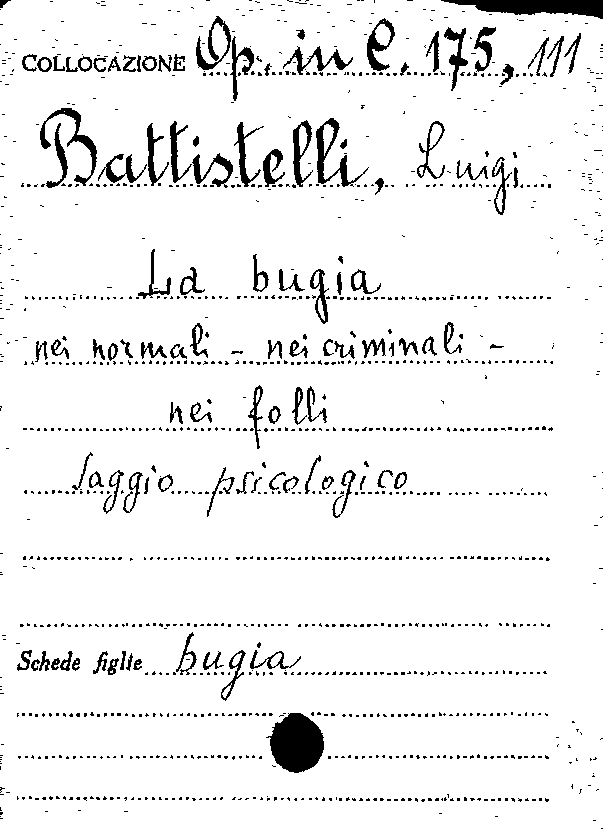 COLLOCAZIONE Op. in C. 175, 111
Battistelli, Luigi
La bugia
nei normali - nei criminali -
nei folli
Saggio psicologico
Schede figlie bugia